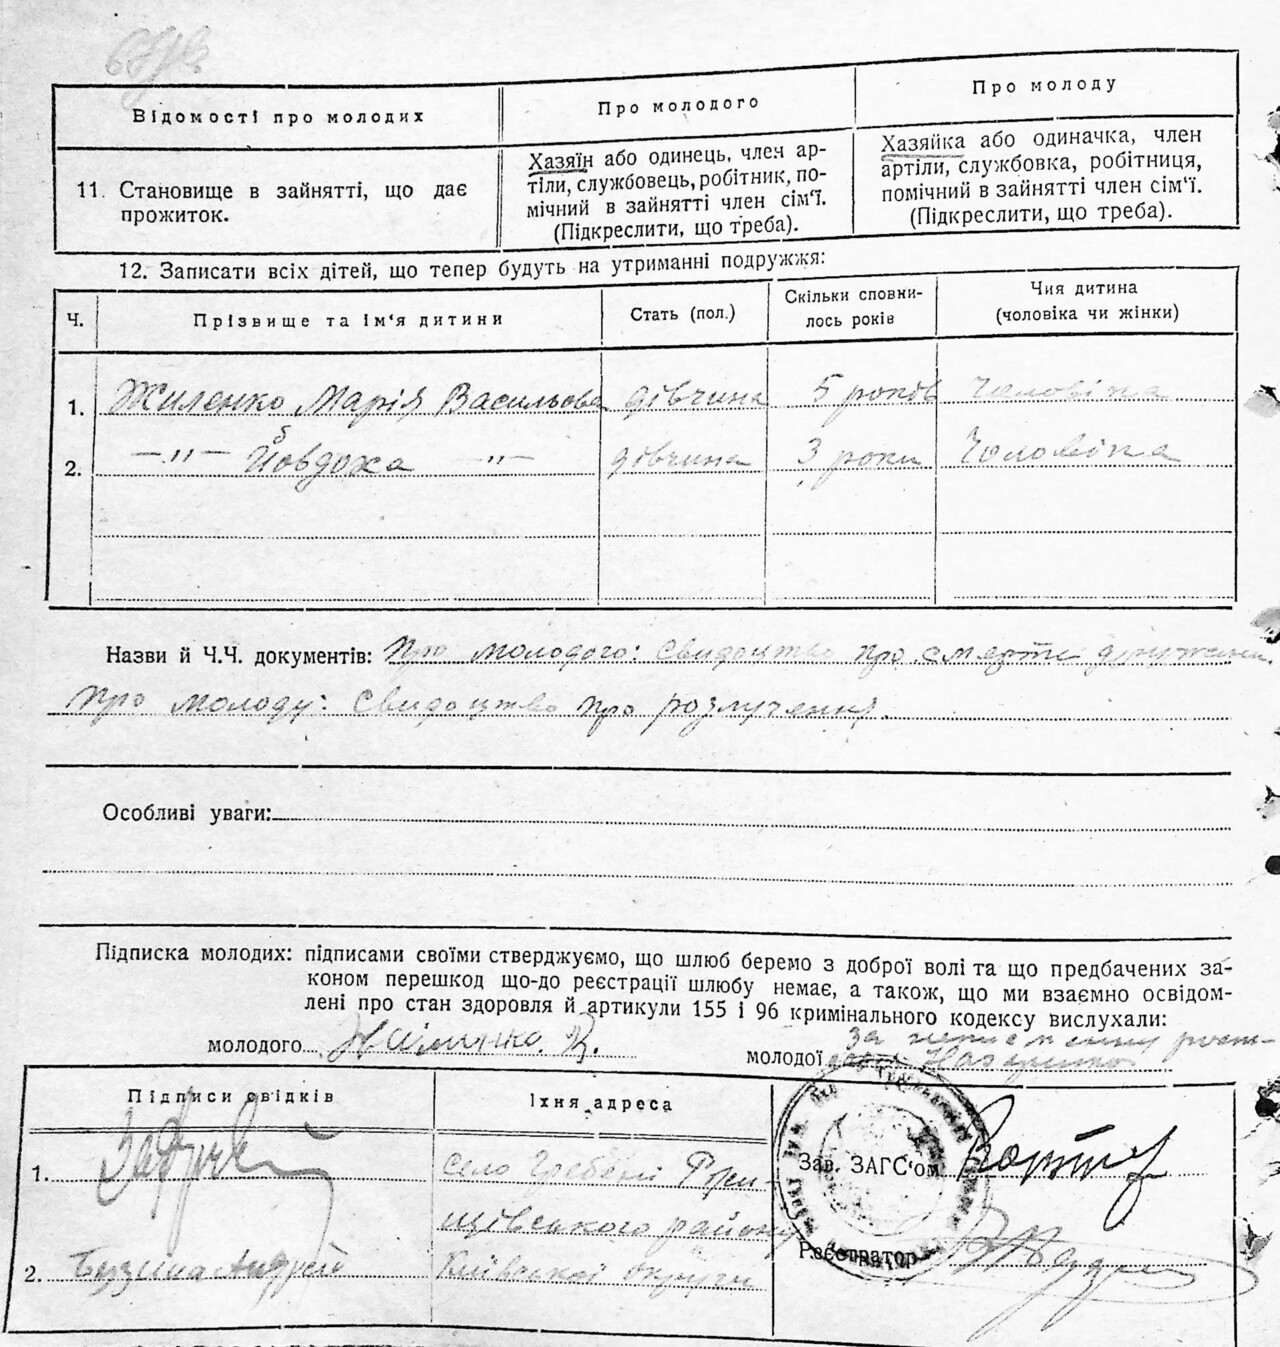 Відомості про молодих
Про молодого
Про молоду
11. Становище в зайнятті, що дає
прожиток.
Хазяїн або одинець, член ар-
тіли, службовець, робітник, по-
мічний в зайнятті член сім'ї.
(Підкреслити, що треба).
Хазяйка або одиначка, член
артіли, службовка, робітниця,
помічний в зайнятті член сім'ї.
(Підкреслити, що треба).
12. Записати всіх дітей, що тепер будуть на утриманні подружжя:
Ч.
Прізвище та ім'я дитини
Стать (пол.)
Скільки сповни-
лось років
Чия дитина
(чоловіка чи жінки)
1. Жиленко Марія Васильова дівчина 5 років Чоловіка
2. —"— Йовдоха —"— дівчина 3 роки Чоловіка
Назви й Ч.Ч. документів: Про молодого: Свидоцтво про смерть дружини.
Про молоду: Свидоцтво про розлучення.
Особливі уваги:
Підписка молодих: підписами своїми стверджуємо, що шлюб беремо з доброї волі та що предбачених за-
коном перешкод що-до реєстрації шлюбу немає, а також, що ми взаємно освідом-
лені про стан здоровля й артикули 155 і 96 кримінального кодексу вислухали:
молодого
молодої за
Підписи свідків
Їхня адреса
1.
село Гребені Ржи-
щівського району
2. Бузина Андрій
Київської округи
Зав. ЗАГС'ом
Реєстратор